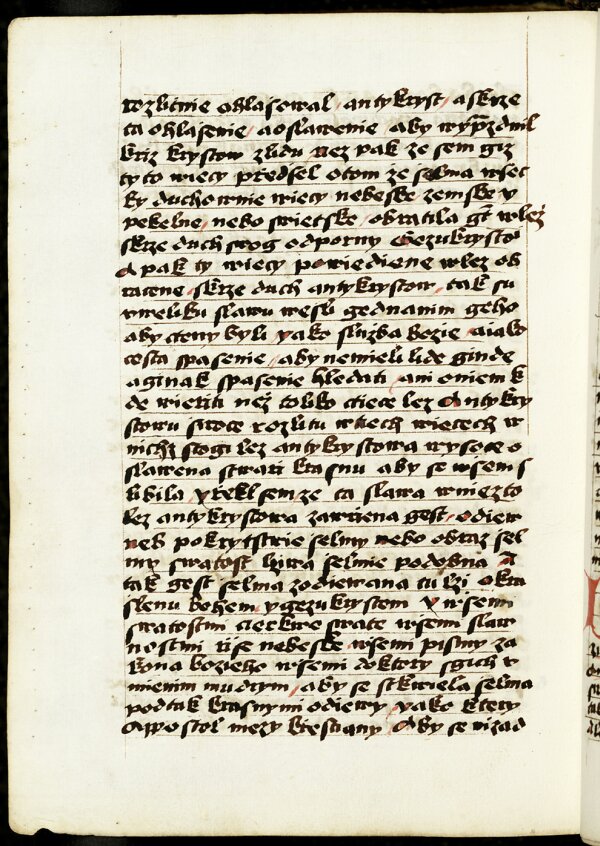 rozlitnie ohlasowal antykryst / a skrze
ta ohlasenie / a oslawenie aby wyprzdnil
kriz krystow z lidu nez pak ze sem giz
ty to wiecy předsel o tom ze selma wsec
ky duchownie wiecy nebeske zemske y
pekelne / nebo swietske / obratila gt w lez
skrze duch swog odporny Gezukrystow
A pak ty wiecy powiediene w lez ob
racene / skrze duch antykrystow / tak su
w weliku slawu wesly gednanim geho
aby cteny byli yako sluzba bozie a iako
cesta spasenie / aby nemieli lide ginde
a ginak spasenie hledati / ani o niem k
de wieriti nez toliko ctiece lez Antykry
stowu siroce rozlitu w tiech wiecech w
nichz stogi lez antykrystowa wysoce o
slawena s twari krasnu aby se wsem s
libila y řekl sem ze ta slawa w niez to
lez antykrystowa zawita gest / odiew
neb pokrytstwie selmy nebo obraz sel
my swatost bitra selmie podobna A
tak gest selma zodiewana tu lzi okra
slenu bohem y gezukrystem y wsemi
swatostmi cierkwe swate wsemi slaw
nostmi rise nebeske wsemi pismy za
kona bozieho wsemi doktory sgich v
mienim mudrym / aby se stkwiela selma
pod tak krasnymi odiewy / yako ktery
Appostol mezy krestiany Aby se nizad